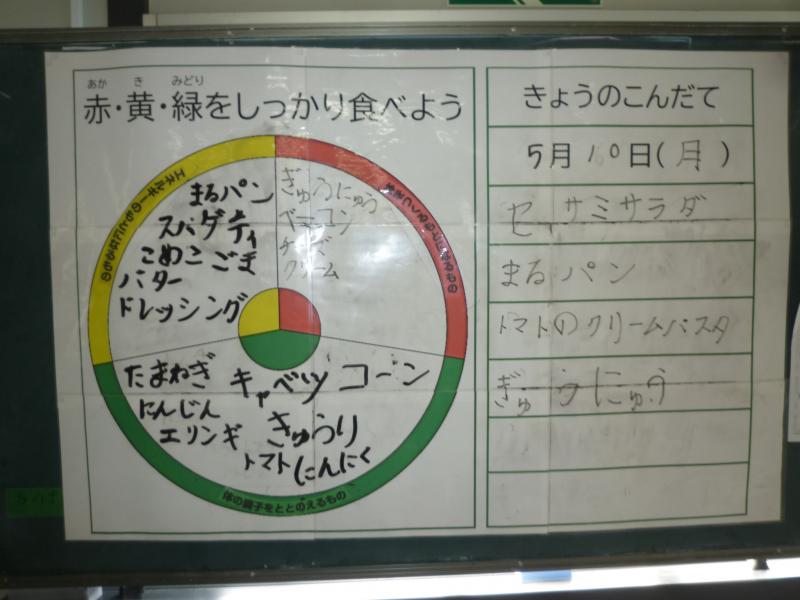 あか き みどり
赤・黄・緑をしっかり食べよう
エネルギーのもとになるもの
まるパン
スパゲティ
こめこ ごま
バター
ドレッシング
ぎゅうにゅう
ベーコン
チーズ
クリーム
たまねぎ
にんじん
エリンギ
キャベツ コーン
きゅうり
トマト にんにく
体の調子をととのえるもの
きょうのこんだて
5月10日(月)
セサミサラダ
まるパン
トマトのクリームパスタ
ぎゅうにゅう